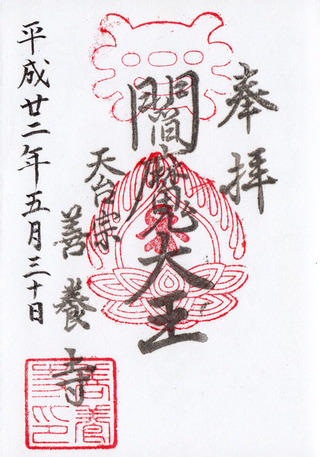 奉拝
閻魔大王
天台宗
善養寺
平成廿二年五月三十日
善養
寺印